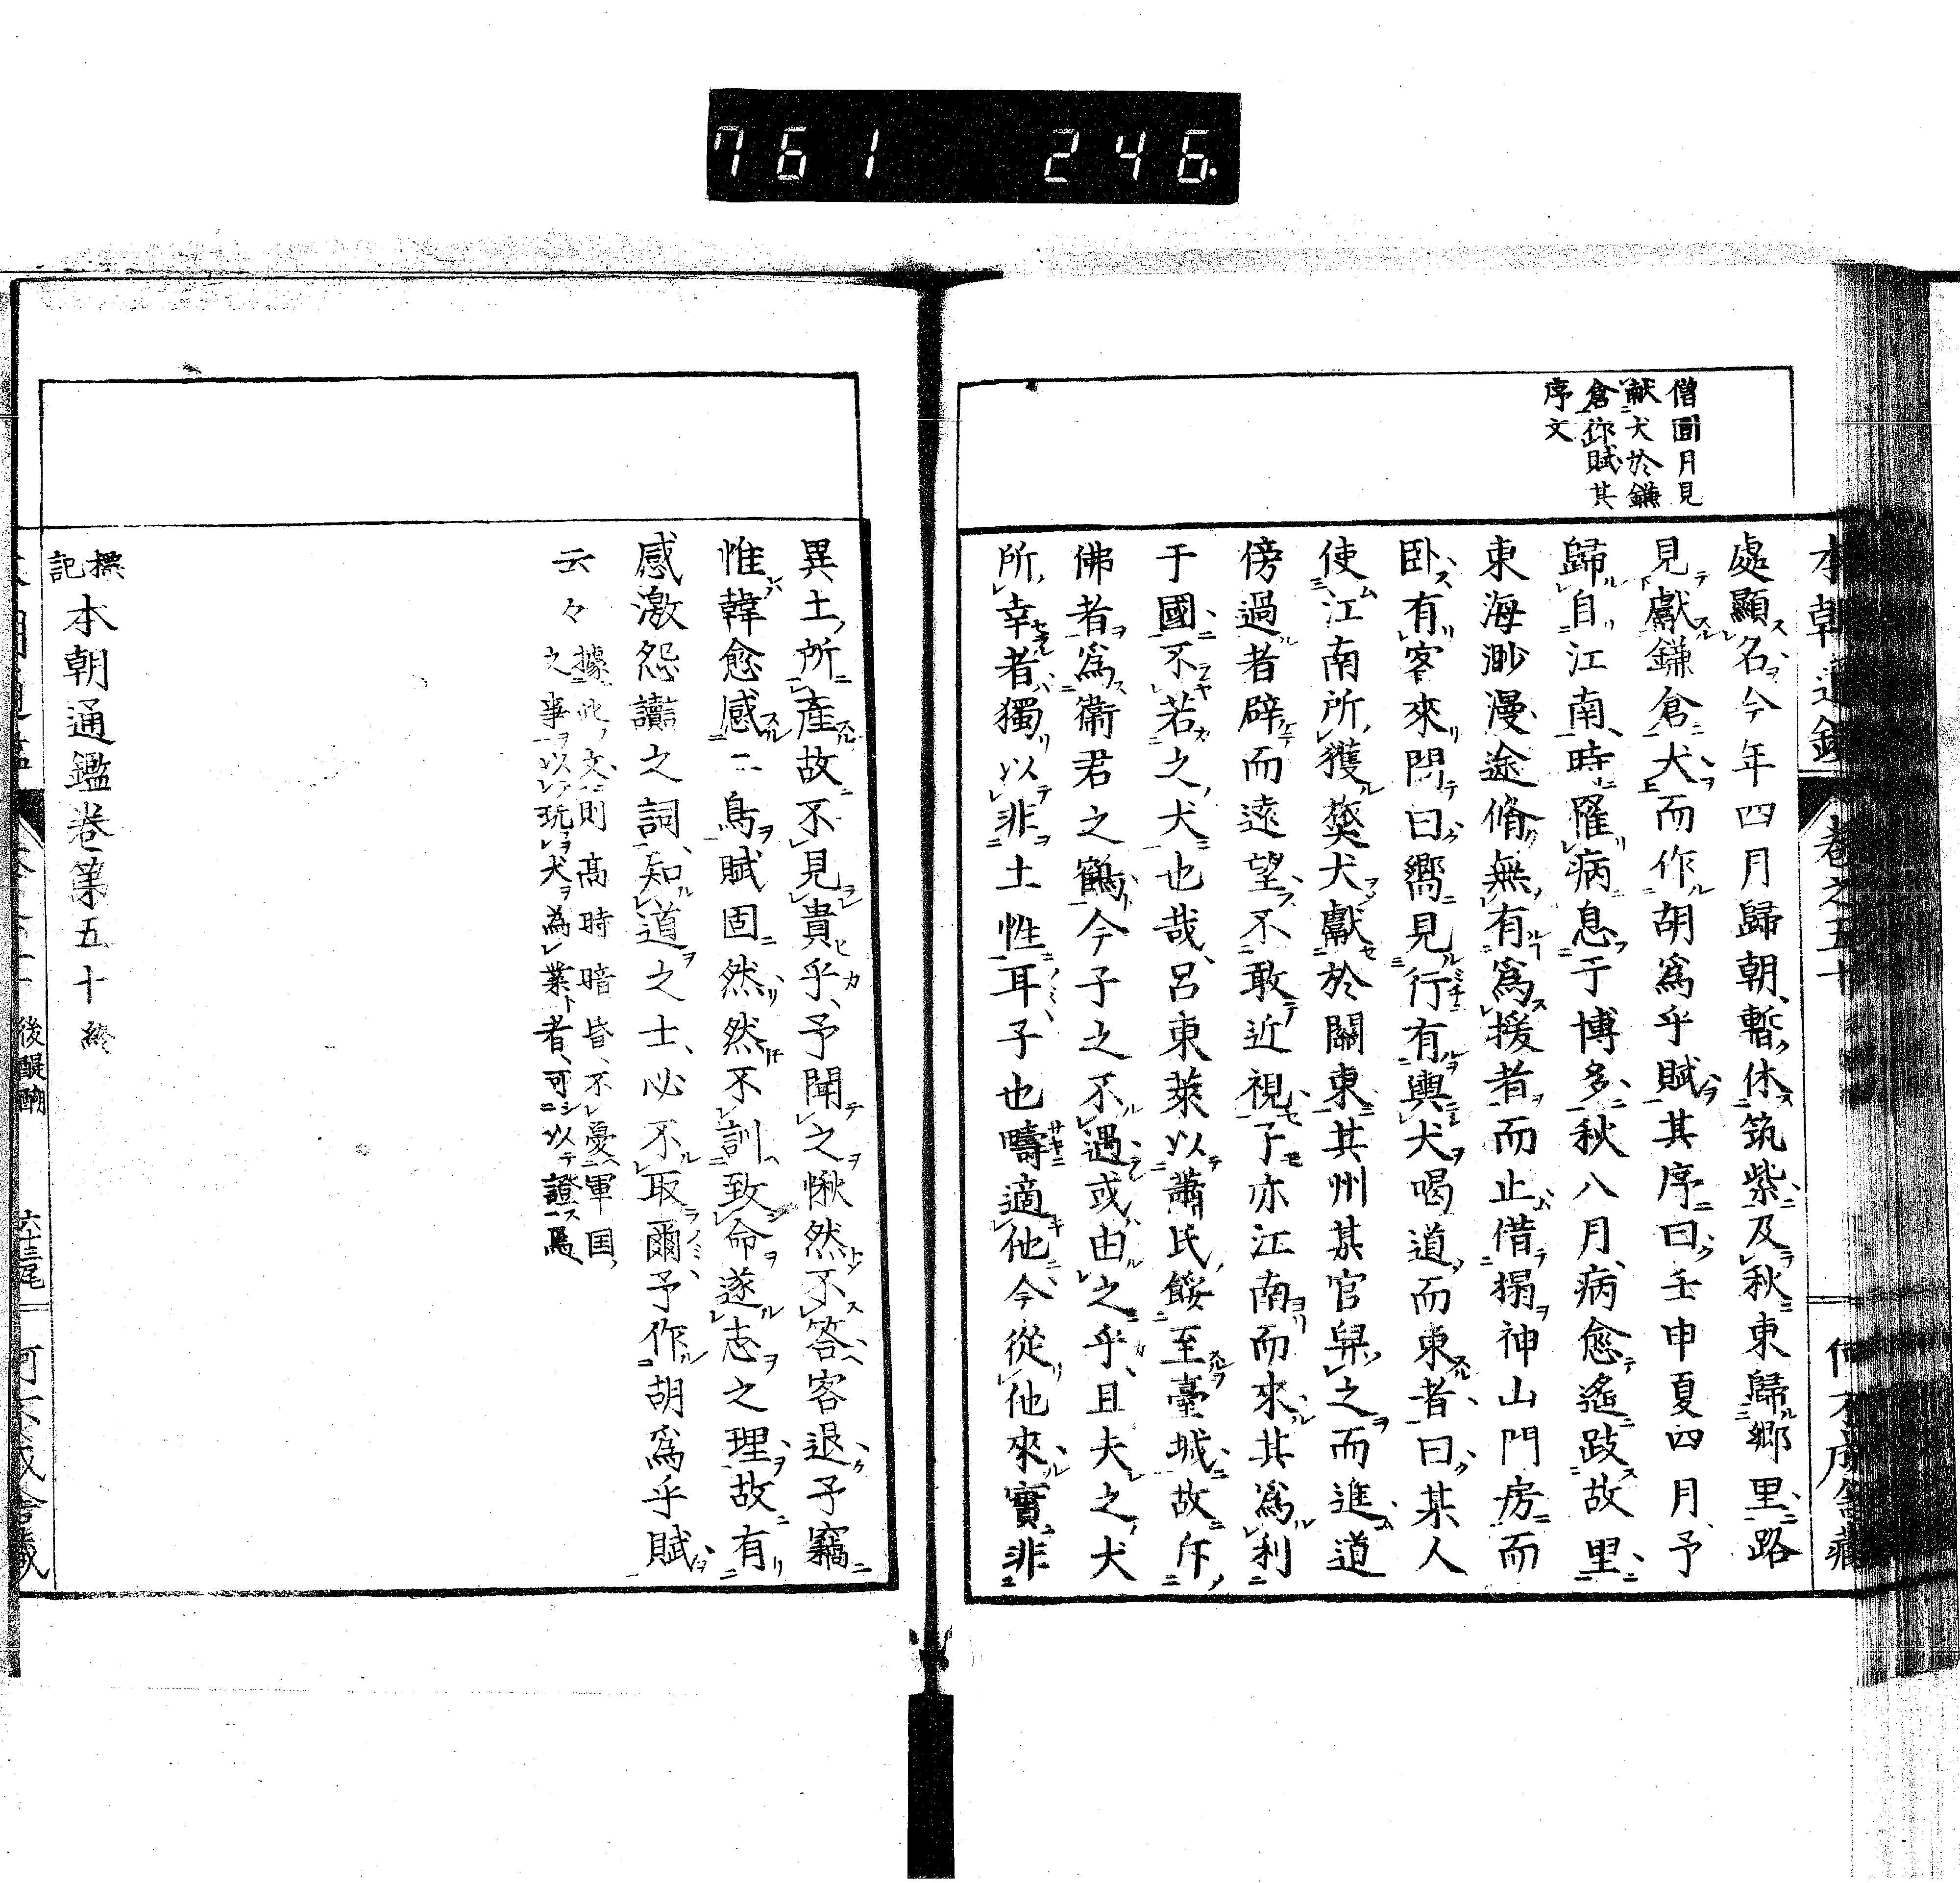 761 246
本朝通鑑 卷之五十
僧圓月見
献犬於鎌
倉作賦其
序文
處顯名今年四月歸朝暫休筑紫及秋東歸郷里路
見獻鎌倉犬而作胡爲乎賦其序曰壬申夏四月予
歸自江南時罹病息于博多秋八月病愈遙跂故里
東海渺漫途脩無有爲援者而止借榻神山門房而
臥有客來問曰嚮見行有輿犬喝道而東者曰某人
使江南所獲獒犬獻於關東其州某官舁之而進道
傍過者辟而遠望不敢近視予亦江南而來其爲利
于國不若之犬也哉呂東萊以蕭氏餒至臺城故斥
佛者爲衞君之鶴今子之不遇或由之乎且夫之犬
所幸者獨以非土性耳子也疇適他今從他來實非
異土所產故不見貴乎予聞之愀然不答客退予竊
惟韓愈感二鳥賦固然然不訓致命遂志之理故有
感激怨讟之詞知道之士必不取爾予作胡爲乎賦
云々
據此文則高時暗昏不憂軍国
之事以玩犬為業者可以證焉
標記
本朝通鑑卷第五十終
後醍醐
六十三尾